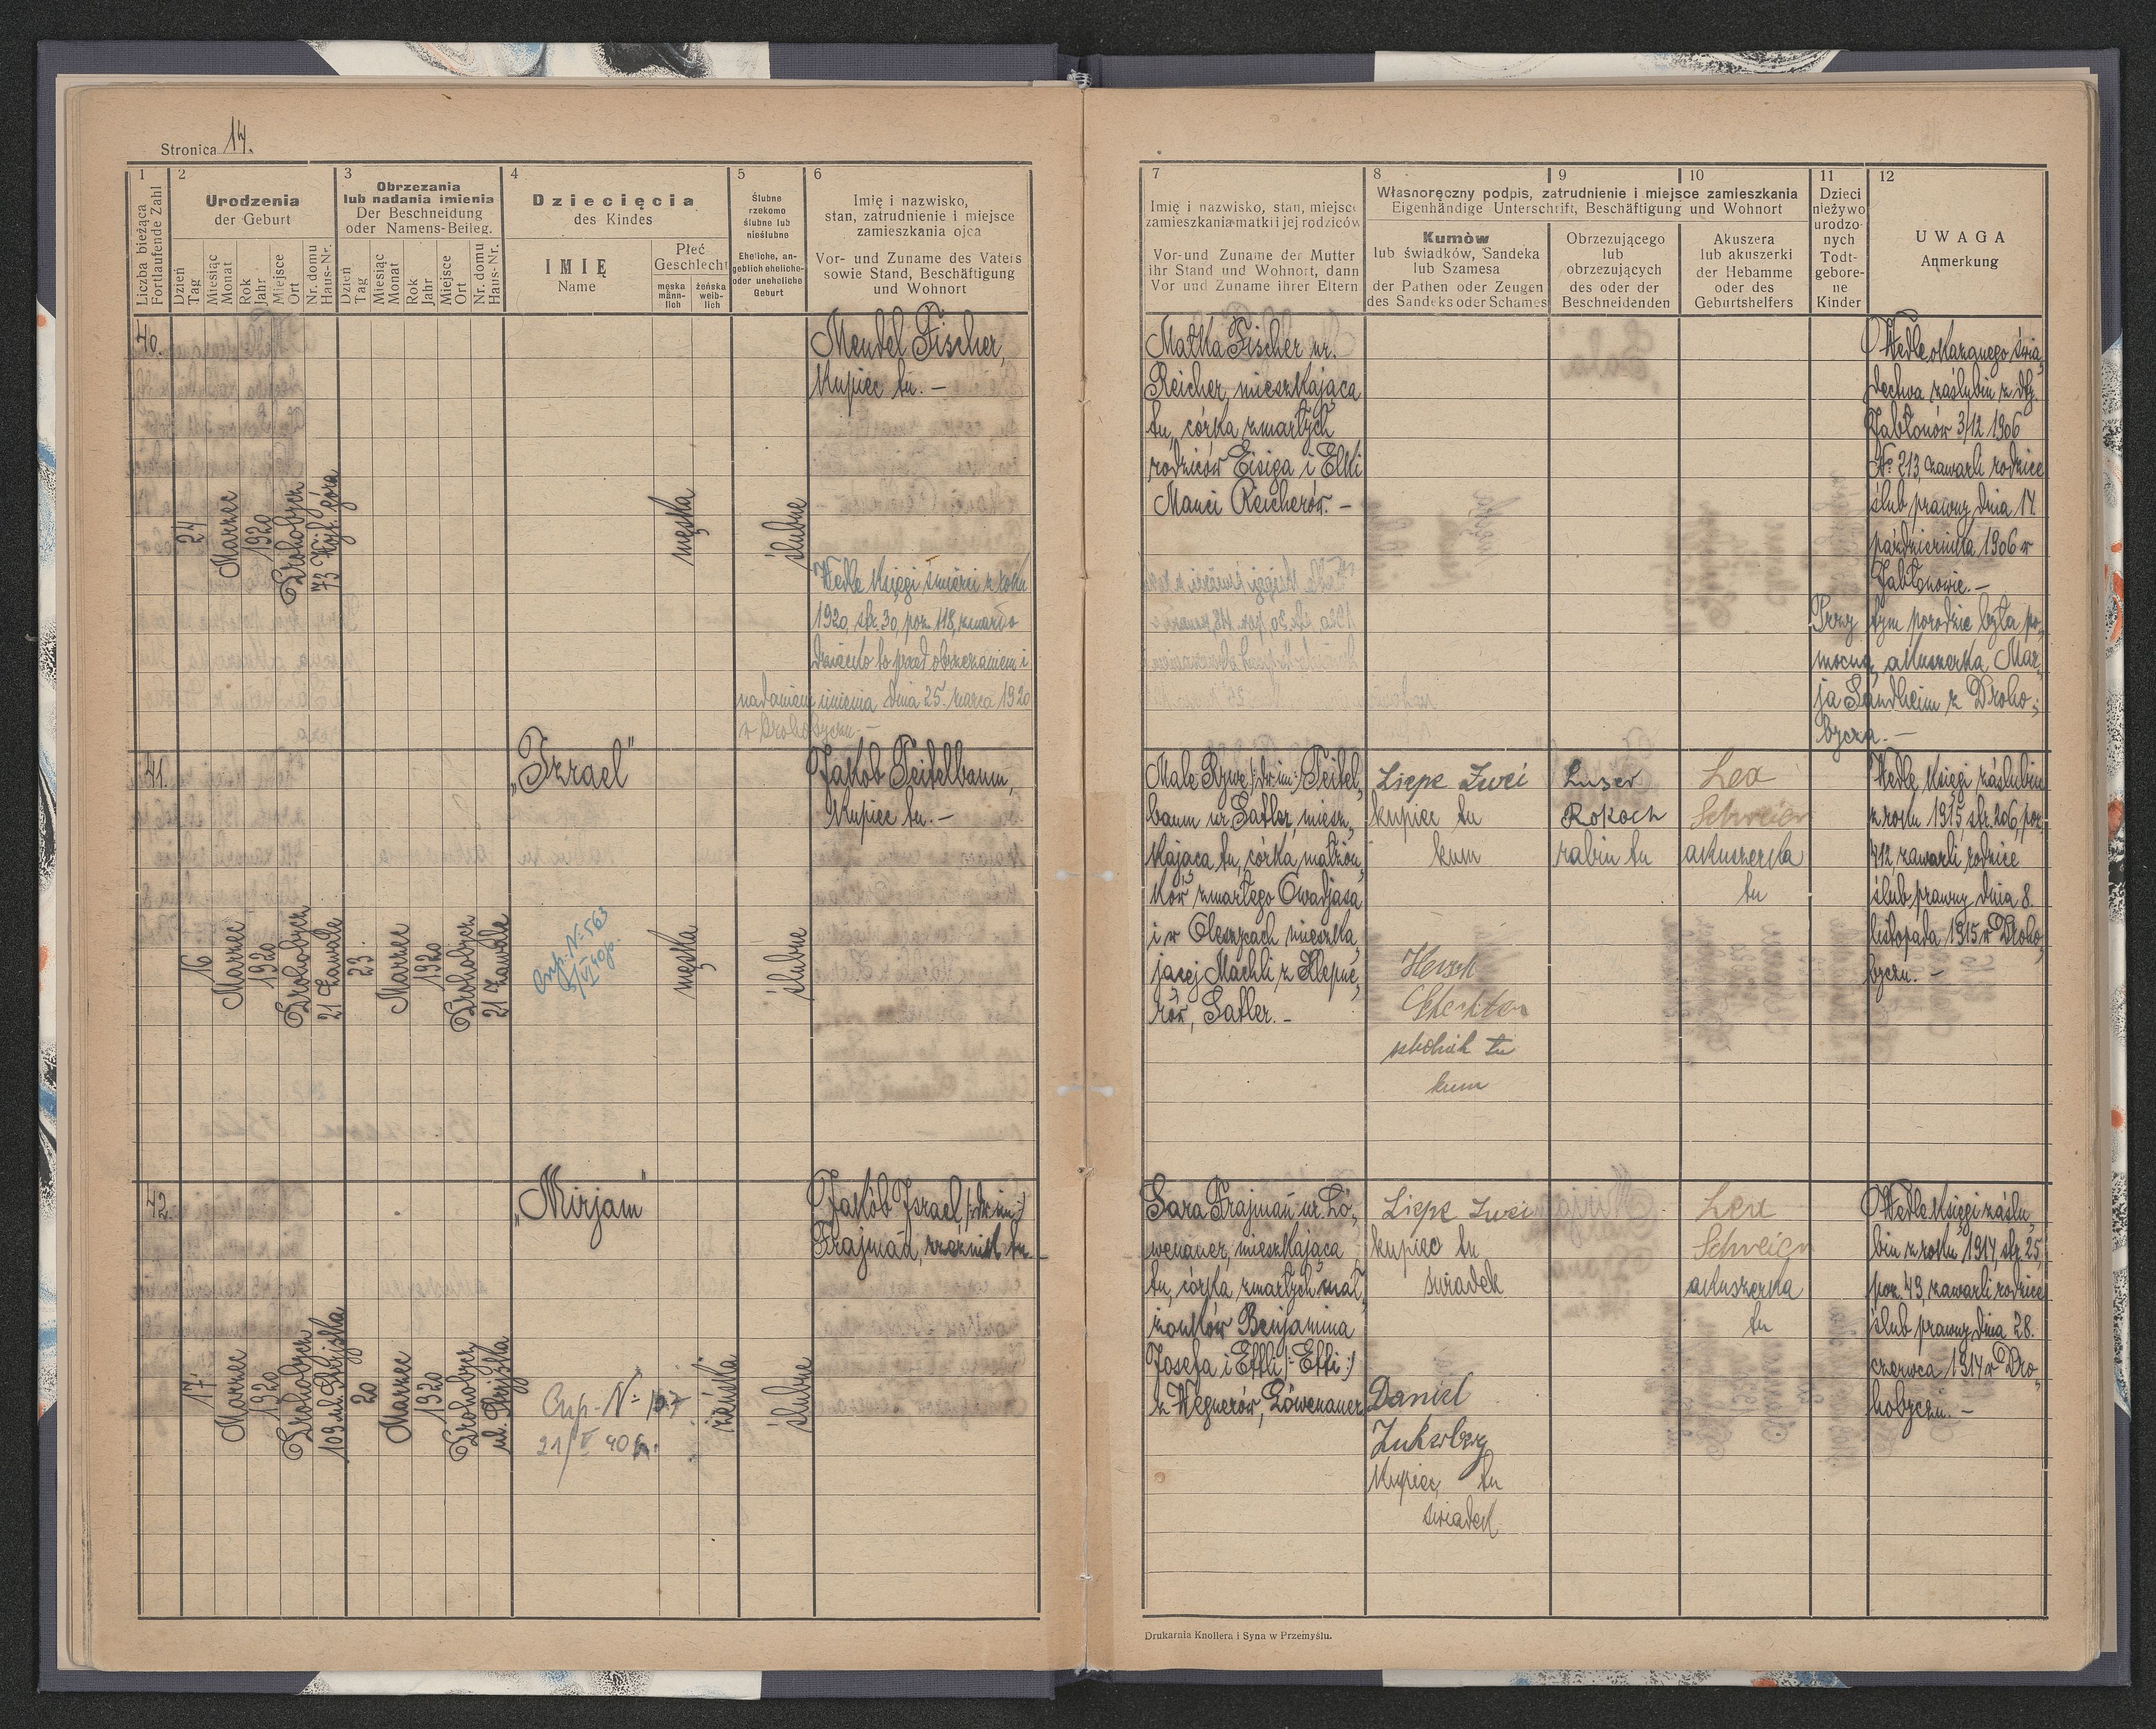 Stronica 14.
1
Liczba bieżąca
Fortlaufende Zahl
2
Urodzenia
der Geburt
Dzień
Tag
Miesiąc
Monat
Rok
Jahr
Miejsce
Ort
Nr. domu
Haus-Nr.
3
Obrzezania
lub nadania imienia
Der Beschneidung
oder Namens-Beileg.
Dzień
Tag
Miesiąc
Monat
Rok
Jahr
Miejsce
Ort
Nr. domu
Haus-Nr.
4
Dziecięcia
des Kindes
IMIĘ
Name
Płeć
Geschlecht
męska
männ-
lich
żeńska
weib-
lich
5
Ślubne
rzekomo
ślubne lub
nieślubne
Eheliche, an-
geblich eheliche
oder uneheliche
Geburt
6
Imię i nazwisko,
stan, zatrudnienie i miejsce
zamieszkania ojca
Vor- und Zuname des Vaters
sowie Stand, Beschäftigung
und Wohnort
7
Imię i nazwisko, stan, miejsce
zamieszkania matki i jej rodziców
Vor- und Zuname der Mutter
ihr Stand und Wohnort, dann
Vor und Zuname ihrer Eltern
8
9
10
Własnoręczny podpis, zatrudnienie i miejsce zamieszkania
Eigenhändige Unterschrift, Beschäftigung und Wohnort
Kumów
lub świadków, Sandeka
lub Szamesa
der Pathen oder Zeugen
des Sandeks oder Schames
Obrzezującego
lub
obrzezujących
des oder der
Beschneidenden
Akuszera
lub akuszerki
der Hebamme
oder des
Geburtshelfers
11
Dzieci
nieżywo
urodzo-
nych
Todt-
gebore-
ne
Kinder
12
UWAGA
Anmerkung
40.
24
Marzec
1920
Drohobycz
73 Wójt. góra
męska
ślubne
Mendel Fischer,
Kupiec tu. –
Wedle Księgi śmierci z roku
1920, str. 30, poz. 118, zmarło
dziecko to przed obrzezaniem i
nadaniem imienia dnia 25. marca 1920
w Drohobyczu. –
Malka Fischer ur.
Reicher, mieszkająca
tu, córka zmarłych
rodziców Eisiga i Elki
Manci Reicherów. –
Wedle okazanego świa-
dectwa zaślubin z dtg.
Jabłonów 3/12 1906
No 213, zawarli rodzice
ślub prawny dnia 14.
października 1906 w
Jabłonowie. –
Przy tym porodzie była po-
mocną akuszerka, Mar-
ja Sandheim z Droho-
bycza. –
41.
16
Marzec
1920
Drohobycz
21 Zawale
23.
Marzec
1920
Drohobycz
21 Zawale
„Izrael"
N: 563
5/VI 40 r.
męska
ślubne
Jakób Teitelbaum,
Kupiec tu. –
Male Rywe /: dw. im :/ Teitel-
baum ur. Satler, miesz-
kająca tu, córka małżon-
ków zmarłego Owadjasa
i w Oleszycach mieszka-
jącej Machli z Klepne-
rów, Satler. –
Liepe Zwei
kupiec tu
kum
Hersch
tu
kum
Luser
Rokach
rabin tu
Lea
Schweizer
akuszerka
tu
Wedle Księgi zaślubin
z roku 1915, str. 206, poz.
712, zawarli rodzice
ślub prawny dnia 8.
listopada 1915 w Droho-
byczu. –
42.
17.
Marzec
1920
Drohobycz
109 ul. Stryjska
20
Marzec
1920
Drohobycz
ul. Stryjska
„Mirjam"
N: 107
21/V 40 r.
żeńska
ślubne
Jakób Israel /: dw. im :/
Frajman, rzeźnik tu. –
Sara Frajman ur. Lö-
wenauer, mieszkająca
tu, córka zmarłych mał-
żonków Benjamina
Josefa i Ettli /: Etti :/
z Wegnerów, Löwenauer
Liepe Zwei
kupiec tu
świadek
Daniel
Zukerberg
Kupiec, tu
świadek
Lea
Schweizer
akuszerka
tu
Wedle Księgi zaślu-
bin z roku 1914, str. 25,
poz. 49, zawarli rodzice
ślub prawny dnia 28.
czerwca 1914 w Dro-
hobyczu. –
Drukarnia Knollera i Syna w Przemyślu.